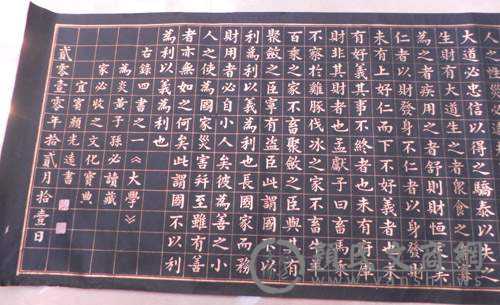 大道必忠信以得之驕泰以失
生財有大道生之者眾食之者
為之者疾用之者舒則財恒足矣
仁者以財發身不仁者以身發財
未有上好仁而下不好義者也未
有好義其事不終者也未有府庫
財非其財者也孟獻子曰畜馬乘
不察於雞豚伐冰之家不畜牛羊
百乘之家不畜聚斂之臣與其有
聚斂之臣寧有盜臣此謂國不以
利為利以義為利也長國家而務
財用者必自小人矣彼為善之小
人之使為國家災害并至雖有善
者亦無如之何矣此謂國不以利
為利以義為利也
古錄四書之一《大學》
為炎黃子孫必讀藏
家必收之文化寶典
宜賓賴光遠書
貳零壹零年拾貳月拾壹日